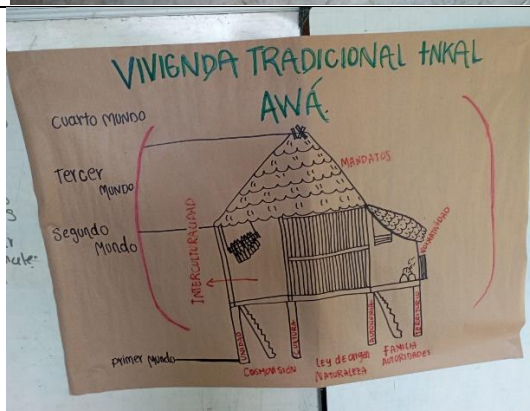 VIVIENDA TRADICIONAL INKAL
AWÁ.
Cuarto MUNDO
Tercer
MUNDO
Segundo
Mundo
Primer Mundo
INTERCULTURALIDAD
MANDATOS
UNIDAD
CULTURA
AUTONOMIA
TERRITORIO
COSMOVISIÓN
Ley de origen
NATURALEZA
FAMILIA
AUTORIDADES